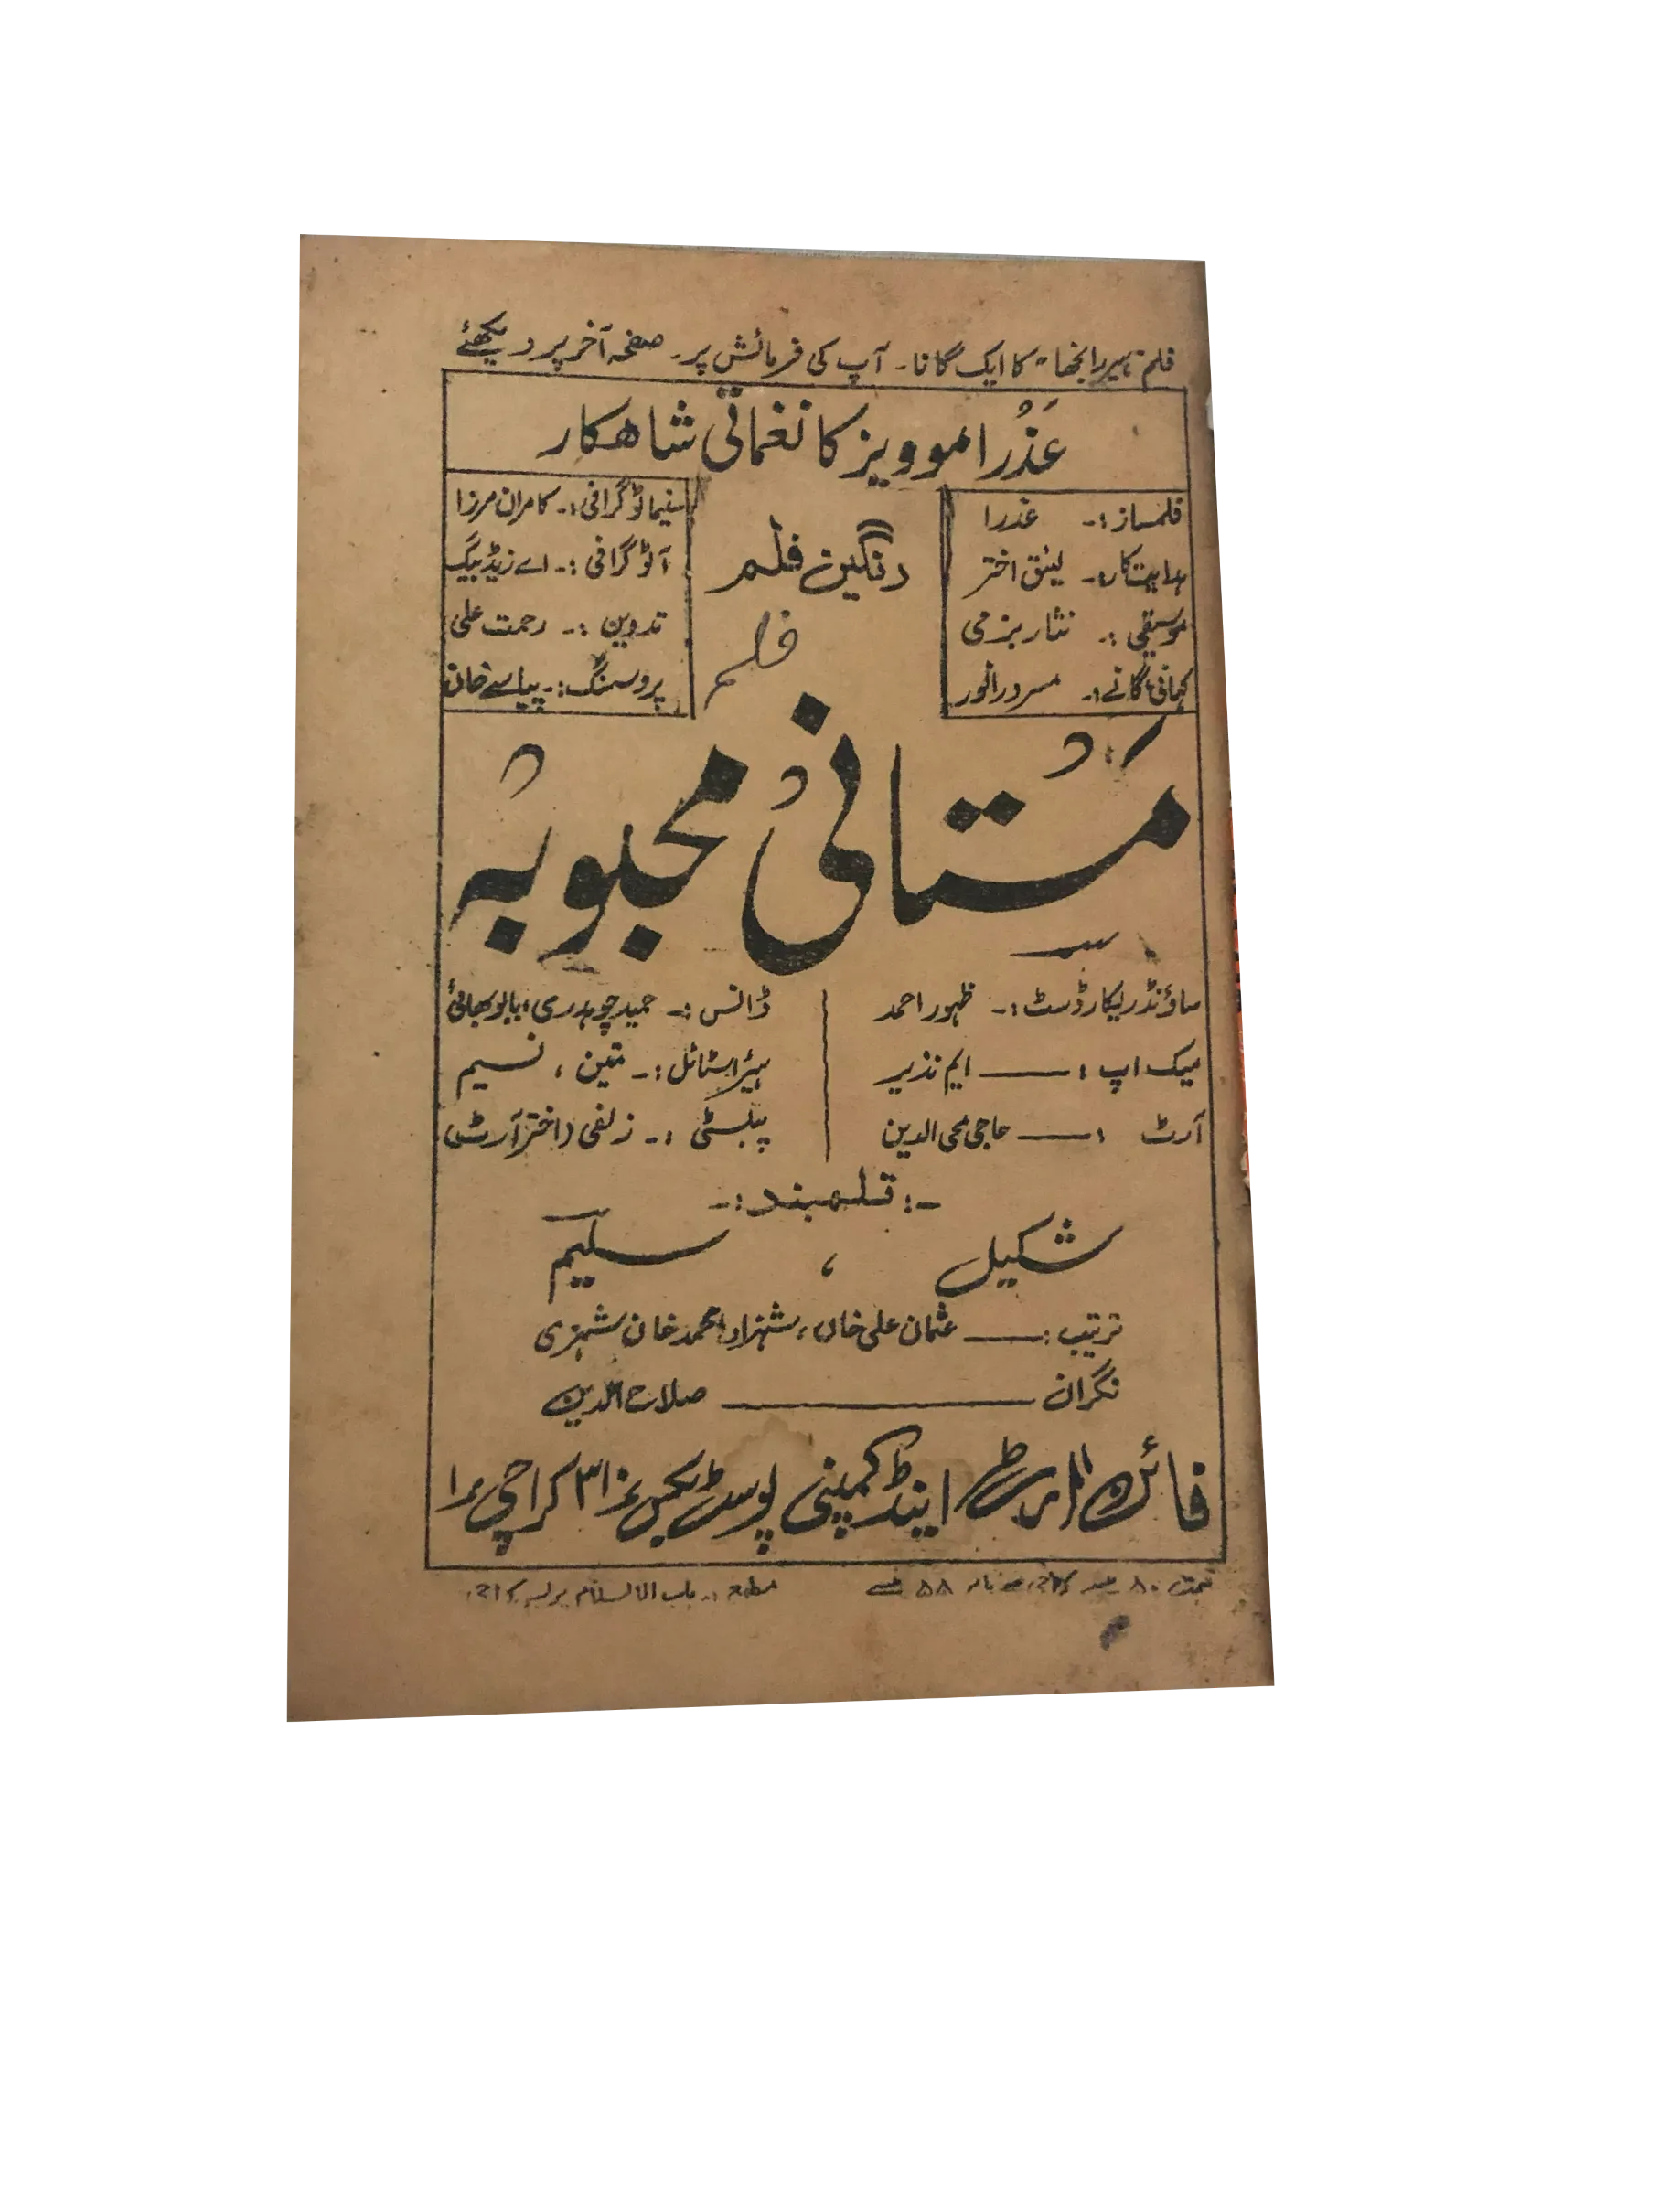 فلم "ہیر رانجھا" کا ایک گانا۔ آپ کی فرمائش پر۔ صفحہ آخر پر دیکھئے
عَذُرا موویز کا نغماتی شاھکار
فلمساز :۔ عذرا
ہدایتکار :۔ لیئق اختر
موسیقی :۔ نثار بزمی
کہانی گانے :۔ مسرور انور
رنگین فلم
فلم
سنیماٹوگرافی :۔ کامران مرزا
آڈوگرافی :۔ اے زیڈ بیگ
تدوین :۔ رحمت علی
پروسسنگ :۔ پیاسے خان
مستانی محبوبہ
ساؤنڈ ریکارڈسٹ :۔ ظہور احمد
میک اپ : ایم نذیر
آرٹ : حاجی محی الدین
ڈانس :۔ حمید چوہدری، بابو بھائی
ہیئر اسٹائل :۔ متین ، نسیم
پبلسٹی :۔ زلفی (اختر آرٹس
۔: قلمبند :۔
شکیل ، سلیم
ترتیب : عثمان علی خاں، شہزاد احمد خان شہزی
نگران صلاح الدین
فائن آرٹ اینڈ کمپنی پوسٹ بکس نمبر ۳۱ کراچی ۱
قیمت ۸۰ پیسے کراچی سے باہر ۸۸ پیسے
مطبع :۔ باب الاسلام پریس کراچی